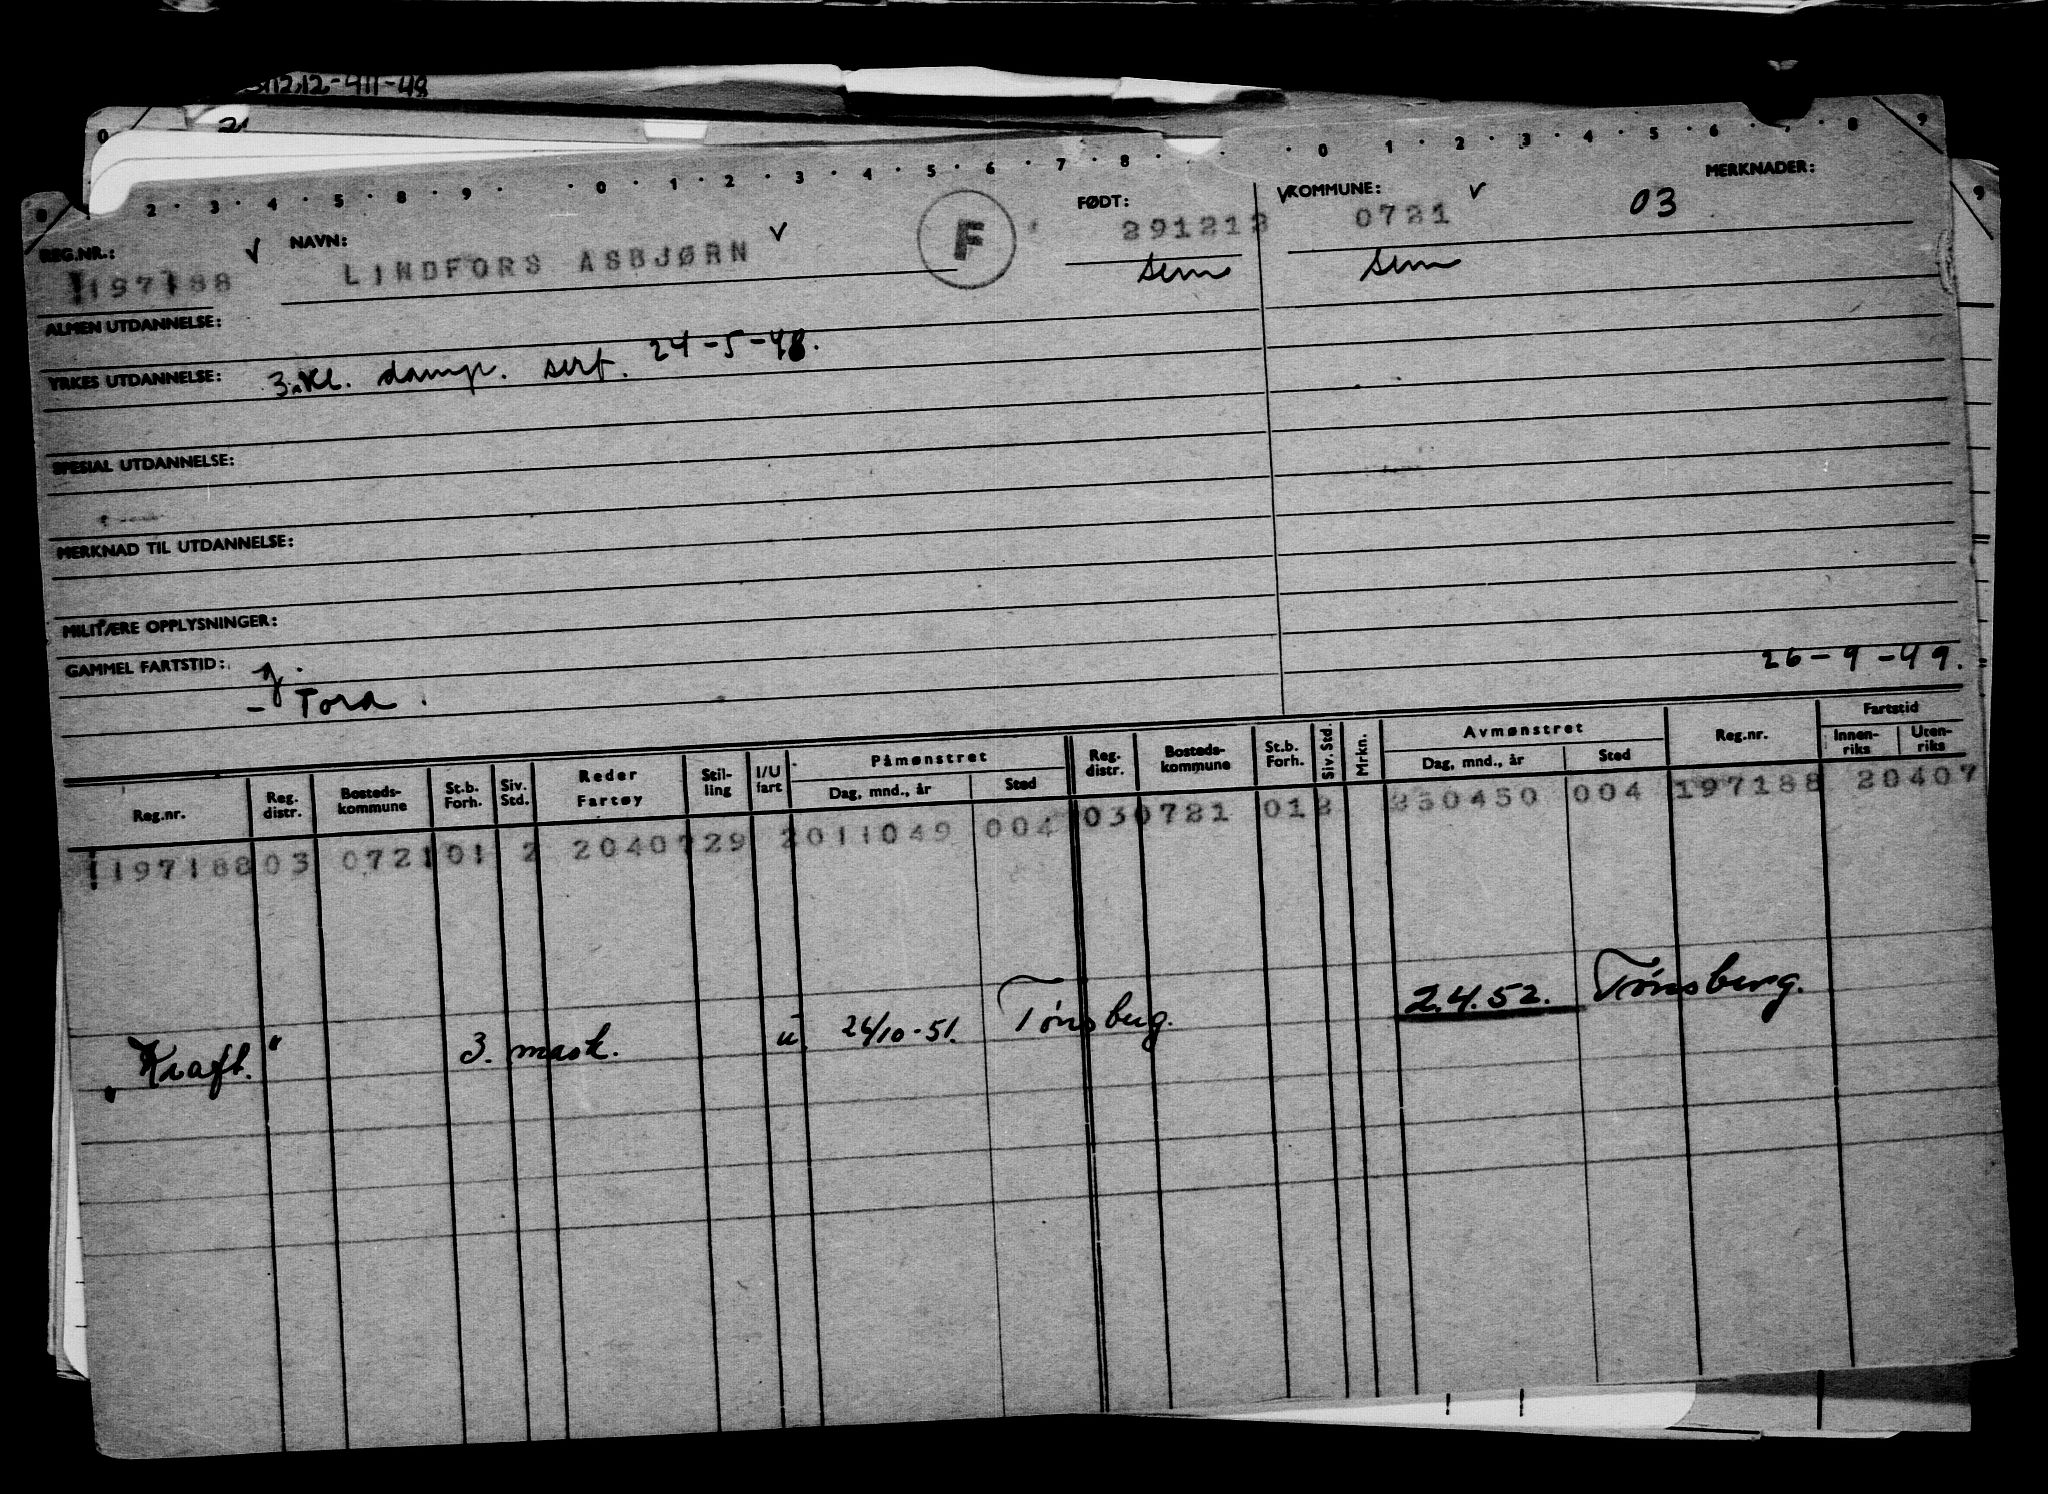 1212-411-48
0 1 2 3 4 5 6 7 8 9
0 2 3 4 5 8 9 0 1 2 3 4 5 6 7 8
REG.NR.: NAVN: FØDT: KOMMUNE: MERKNADER:
197188 LINDFORS ASBJØRN F 291212 0721 03
Sem Sem
ALMEN UTDANNELSE:
YRKES UTDANNELSE: 3. kl. damp. sert. 24-5-48.
SPESIAL UTDANNELSE:
MERKNAD TIL UTDANNELSE:
MILITÆRE OPPLYSNINGER:
GAMMEL FARTSTID:
- Tora. 26-9-49.
Reg.nr. Reg. distr. Bosteds-kommune St.b. Forh. Siv. Std. Reder Fartøy Stil-ling I/U fart Påmønstret Dag, mnd., år Sted Reg. distr. Bosteds-kommune St.b. Forh. Siv. Std. Mrkn. Avmønstret Dag, mnd., år Sted Reg.nr. Fartstid Innen-riks Uten-riks
197188 03 0721 01 2 2040729 2011049 004 030721 012 004 197188 20407
"Kraft." 3. mask. u. Tønsberg. 2.4.52. Tønsberg.